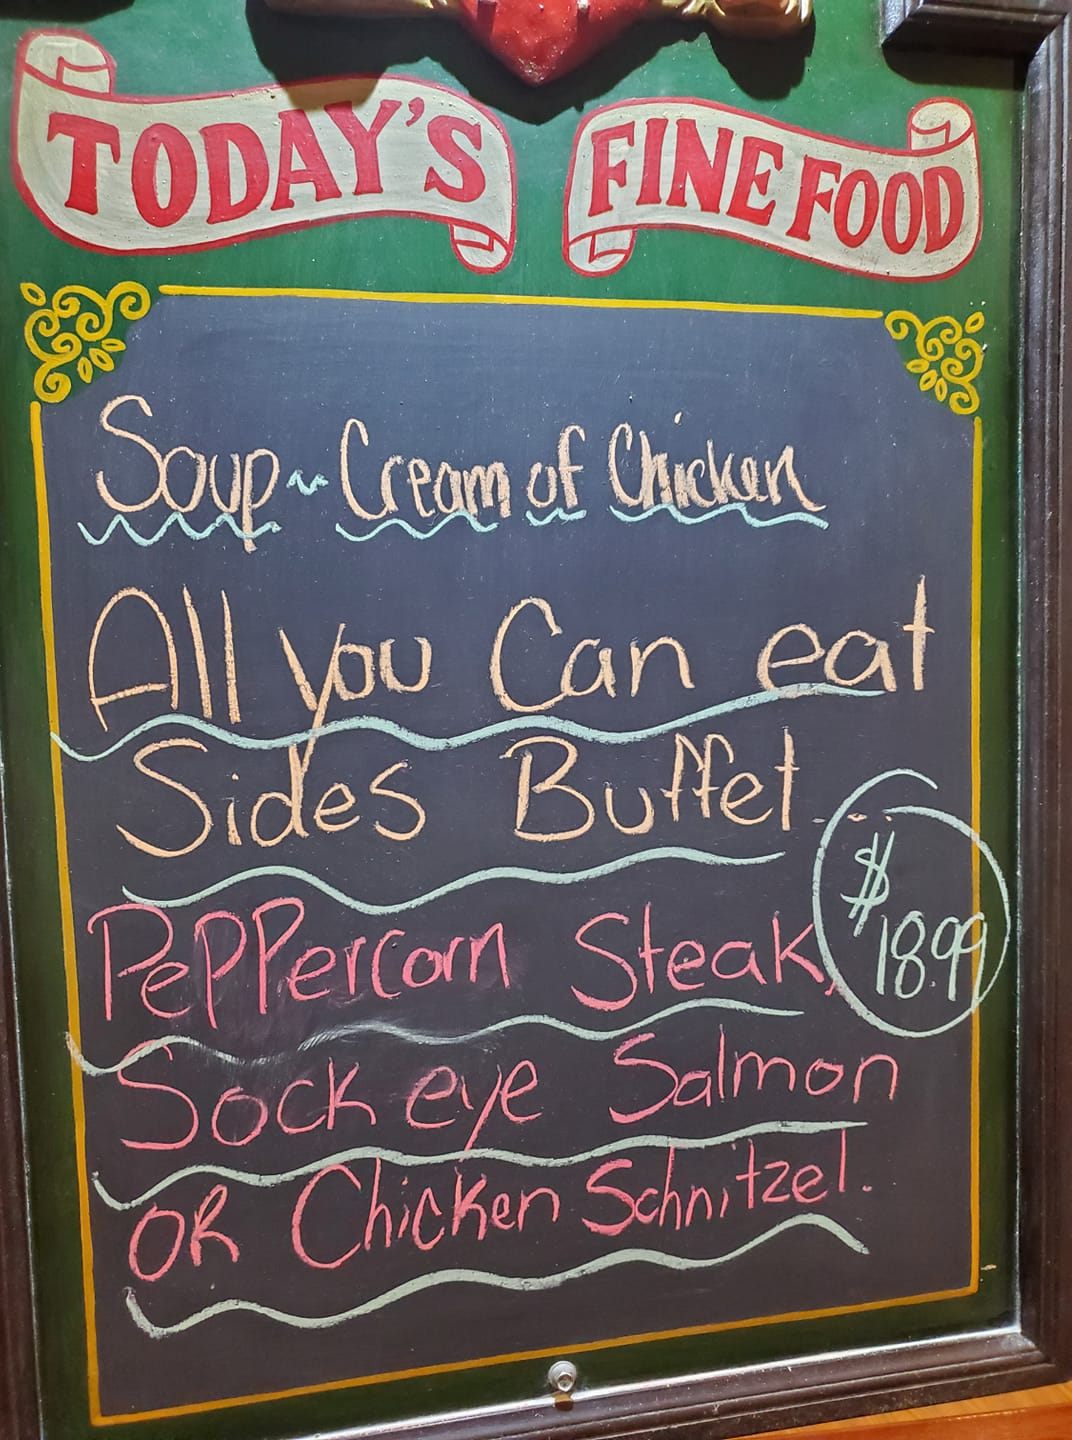 TODAY'S FINE FOOD
Soup ~ Cream of Chicken
All you Can eat
Sides Buffet
$
18.99
PePPercorn Steak,
Sockeye Salmon
OR Chicken Schnitzel.